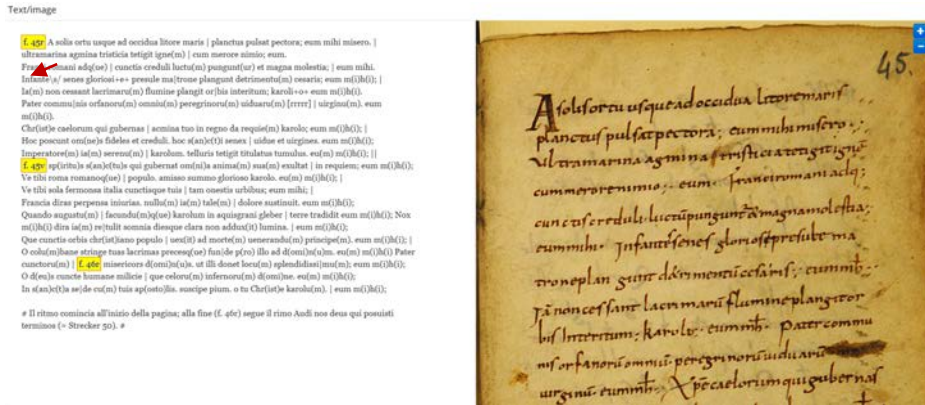 Text/image
f. 45r A solis ortu usque ad occidua litore maris | planctus pulsat pectora; eum mihi misero. |
ultramarina agmina tristicia tetigit igne(m) | cum merore nimio; eum.
Fran romani adq(ue) | cunctis creduli luctu(m) pungunt(ur) et magna molestia; | eum mihi.
Infante\s/ senes gloriosi+e+ presule ma|trone plangunt detrimentu(m) cesaris; eum m(i)h(i); |
Ia(m) non cessant lacrimaru(m) flumine plangit or|bis interitum; karoli+o+ eum m(i)h(i).
Pater commu|nis orfanoru(m) omniu(m) peregrinoru(m) uiduaru(m) [rrrrr] | uirginu(m). eum
m(i)h(i).
Chr(ist)e caelorum qui gubernas | acmina tuo in regno da requie(m) karolo; eum m(i)h(i); |
Hoc poscunt om(ne)s fideles et creduli. hoc s(an)c(t)i senex | uidue et uirgines. eum m(i)h(i);
Imperatore(m) ia(m) serenu(m) | karolum. telluris tetigit titulatus tumulus. eu(m) m(i)h(i); ||
f. 45v sp(iritu)s s(an)c(tu)s qui gubernat om(ni)a anima(m) sua(m) exultat | in requiem; eum m(i)h(i);
Ve tibi roma romanoq(ue) | populo. amisso summo glorioso karolo. eu(m) m(i)h(i); |
Ve tibi sola fermonsa italia cunctisque tuis | tam onestis urbibus; eum mihi; |
Francia diras perpensa iniurias. nullu(m) ia(m) tale(m) | dolore sustinuit. eum m(i)h(i);
Quando augustu(m) | facundu(m)q(ue) karolum in aquisgrani gleber | terre tradidit eum m(i)h(i); Nox
m(i)h(i) dira ia(m) re|tulit somnia diesque clara non addux(it) lumina. | eum m(i)h(i);
Que cunctis orbis chr(ist)iano populo | uex(it) ad morte(m) uenerandu(m) principe(m). eum m(i)h(i); |
O colu(m)bane stringe tuas lacrimas precesq(ue) fun|de p(ro) illo ad d(omi)n(u)m. eu(m) m(i)h(i) Pater
cunctoru(m) | f. 46r misericors d(omi)n(u)s. ut illi donet locu(m) splendidissi|mu(m); eum m(i)h(i);
O d(eu)s cuncte humane milicie | que celoru(m) infernoru(m) d(omi)ne. eu(m) m(i)h(i);
In s(an)c(t)a se|de cu(m) tuis ap(osto)lis. suscipe pium. o tu Chr(ist)e karolu(m). | eum m(i)h(i);
# Il ritmo comincia all'inizio della pagina; alla fine (f. 46r) segue il rimo Audi nos deus qui posuisti
terminos (= Strecker 50). #
45.
A solis ortu usque ad occidua litore maris
planctus pulsat pectora; eum mihi misero;
Ultramarina agmina tristicia tetigit ignē
cum merore nimio; eum. Franci romani adq;
cunctis creduli luctū pungunt & magna molestia;
eum mihi. Infantes senes gloriose presule ma
trone plangunt detrimentū cesaris; eum mh;
Iā non cessant lacrimarū flumine plangit or
bis interitum; Karolo; eum mh. Pater commu
nis orfanorū omniū peregrinorū uiduarū
uirginū eum mh. Xpe caelorum qui gubernas